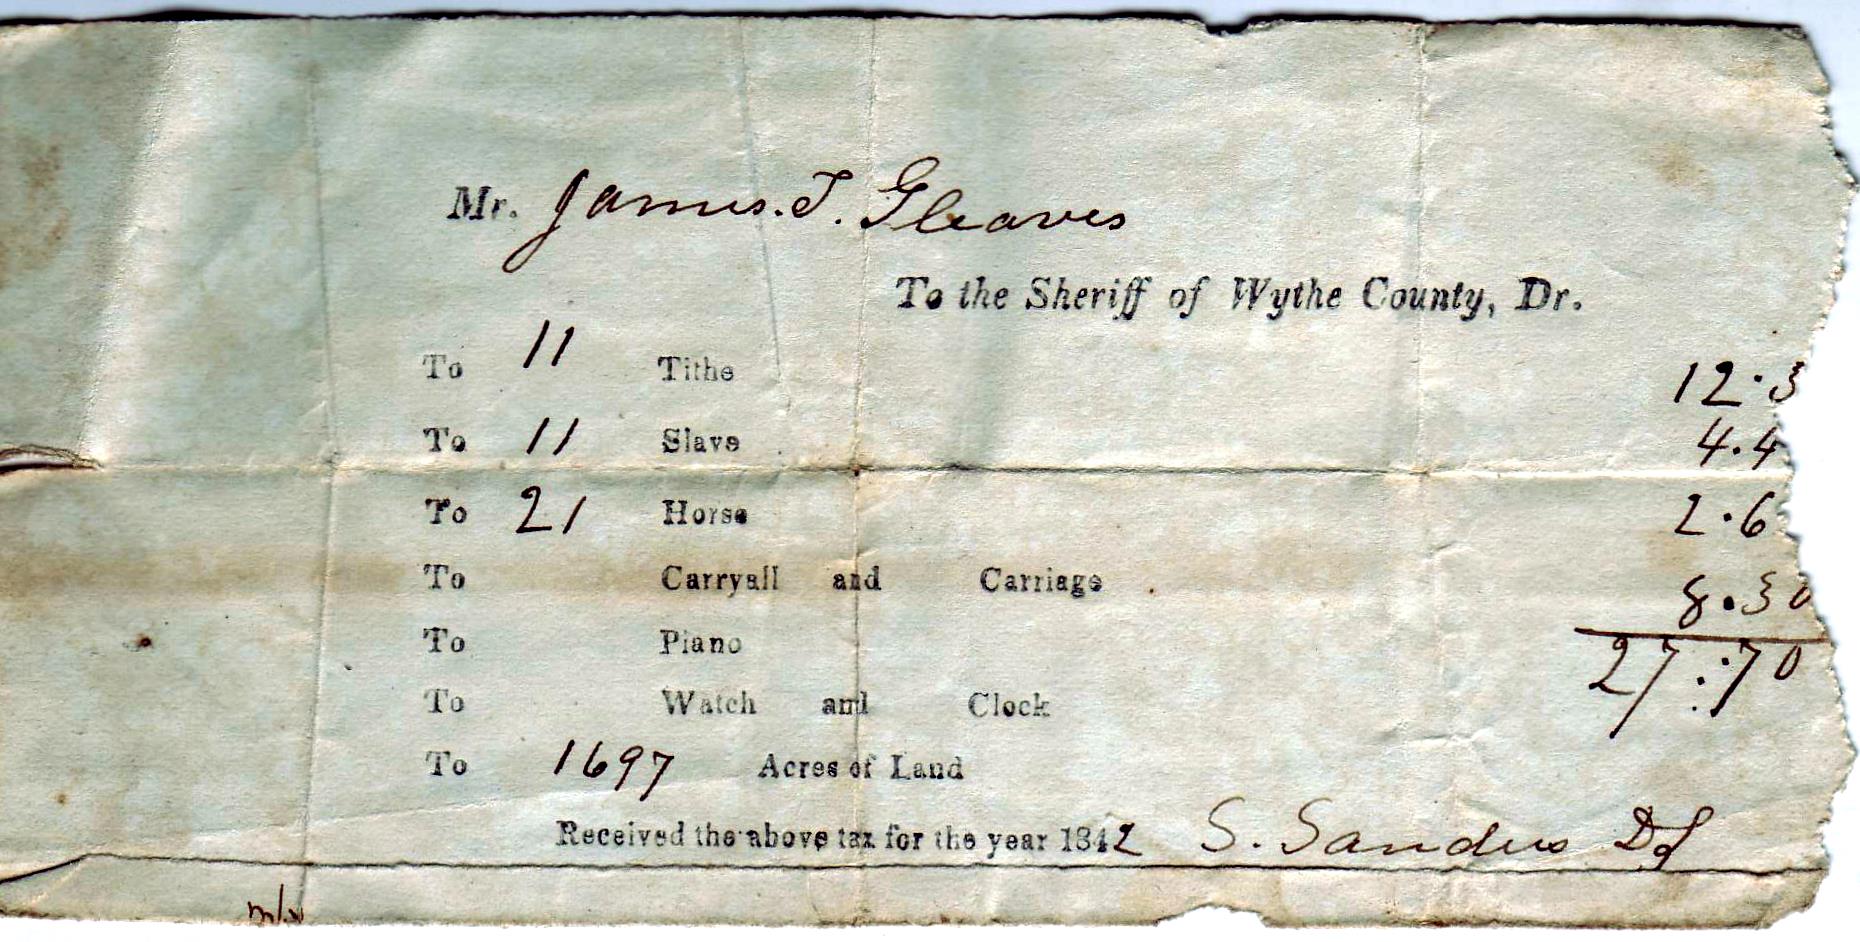 Mr. James. T. Gleaves
To the Sheriff of Wythe County, Dr.
To 11 Tithe 12.3
To 11 Slave 4.4
To 21 Horse 2.6
To Carryall and Carriage
8.30
To Piano
27.70
To Watch and Clock
To 1697 Acres of Land
Received the above tax for the year 1842 S. Sanders